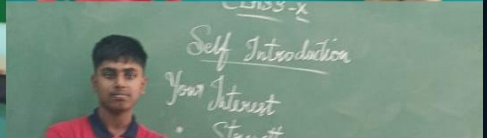 CLASS-X
Self Introduction
Your Interest